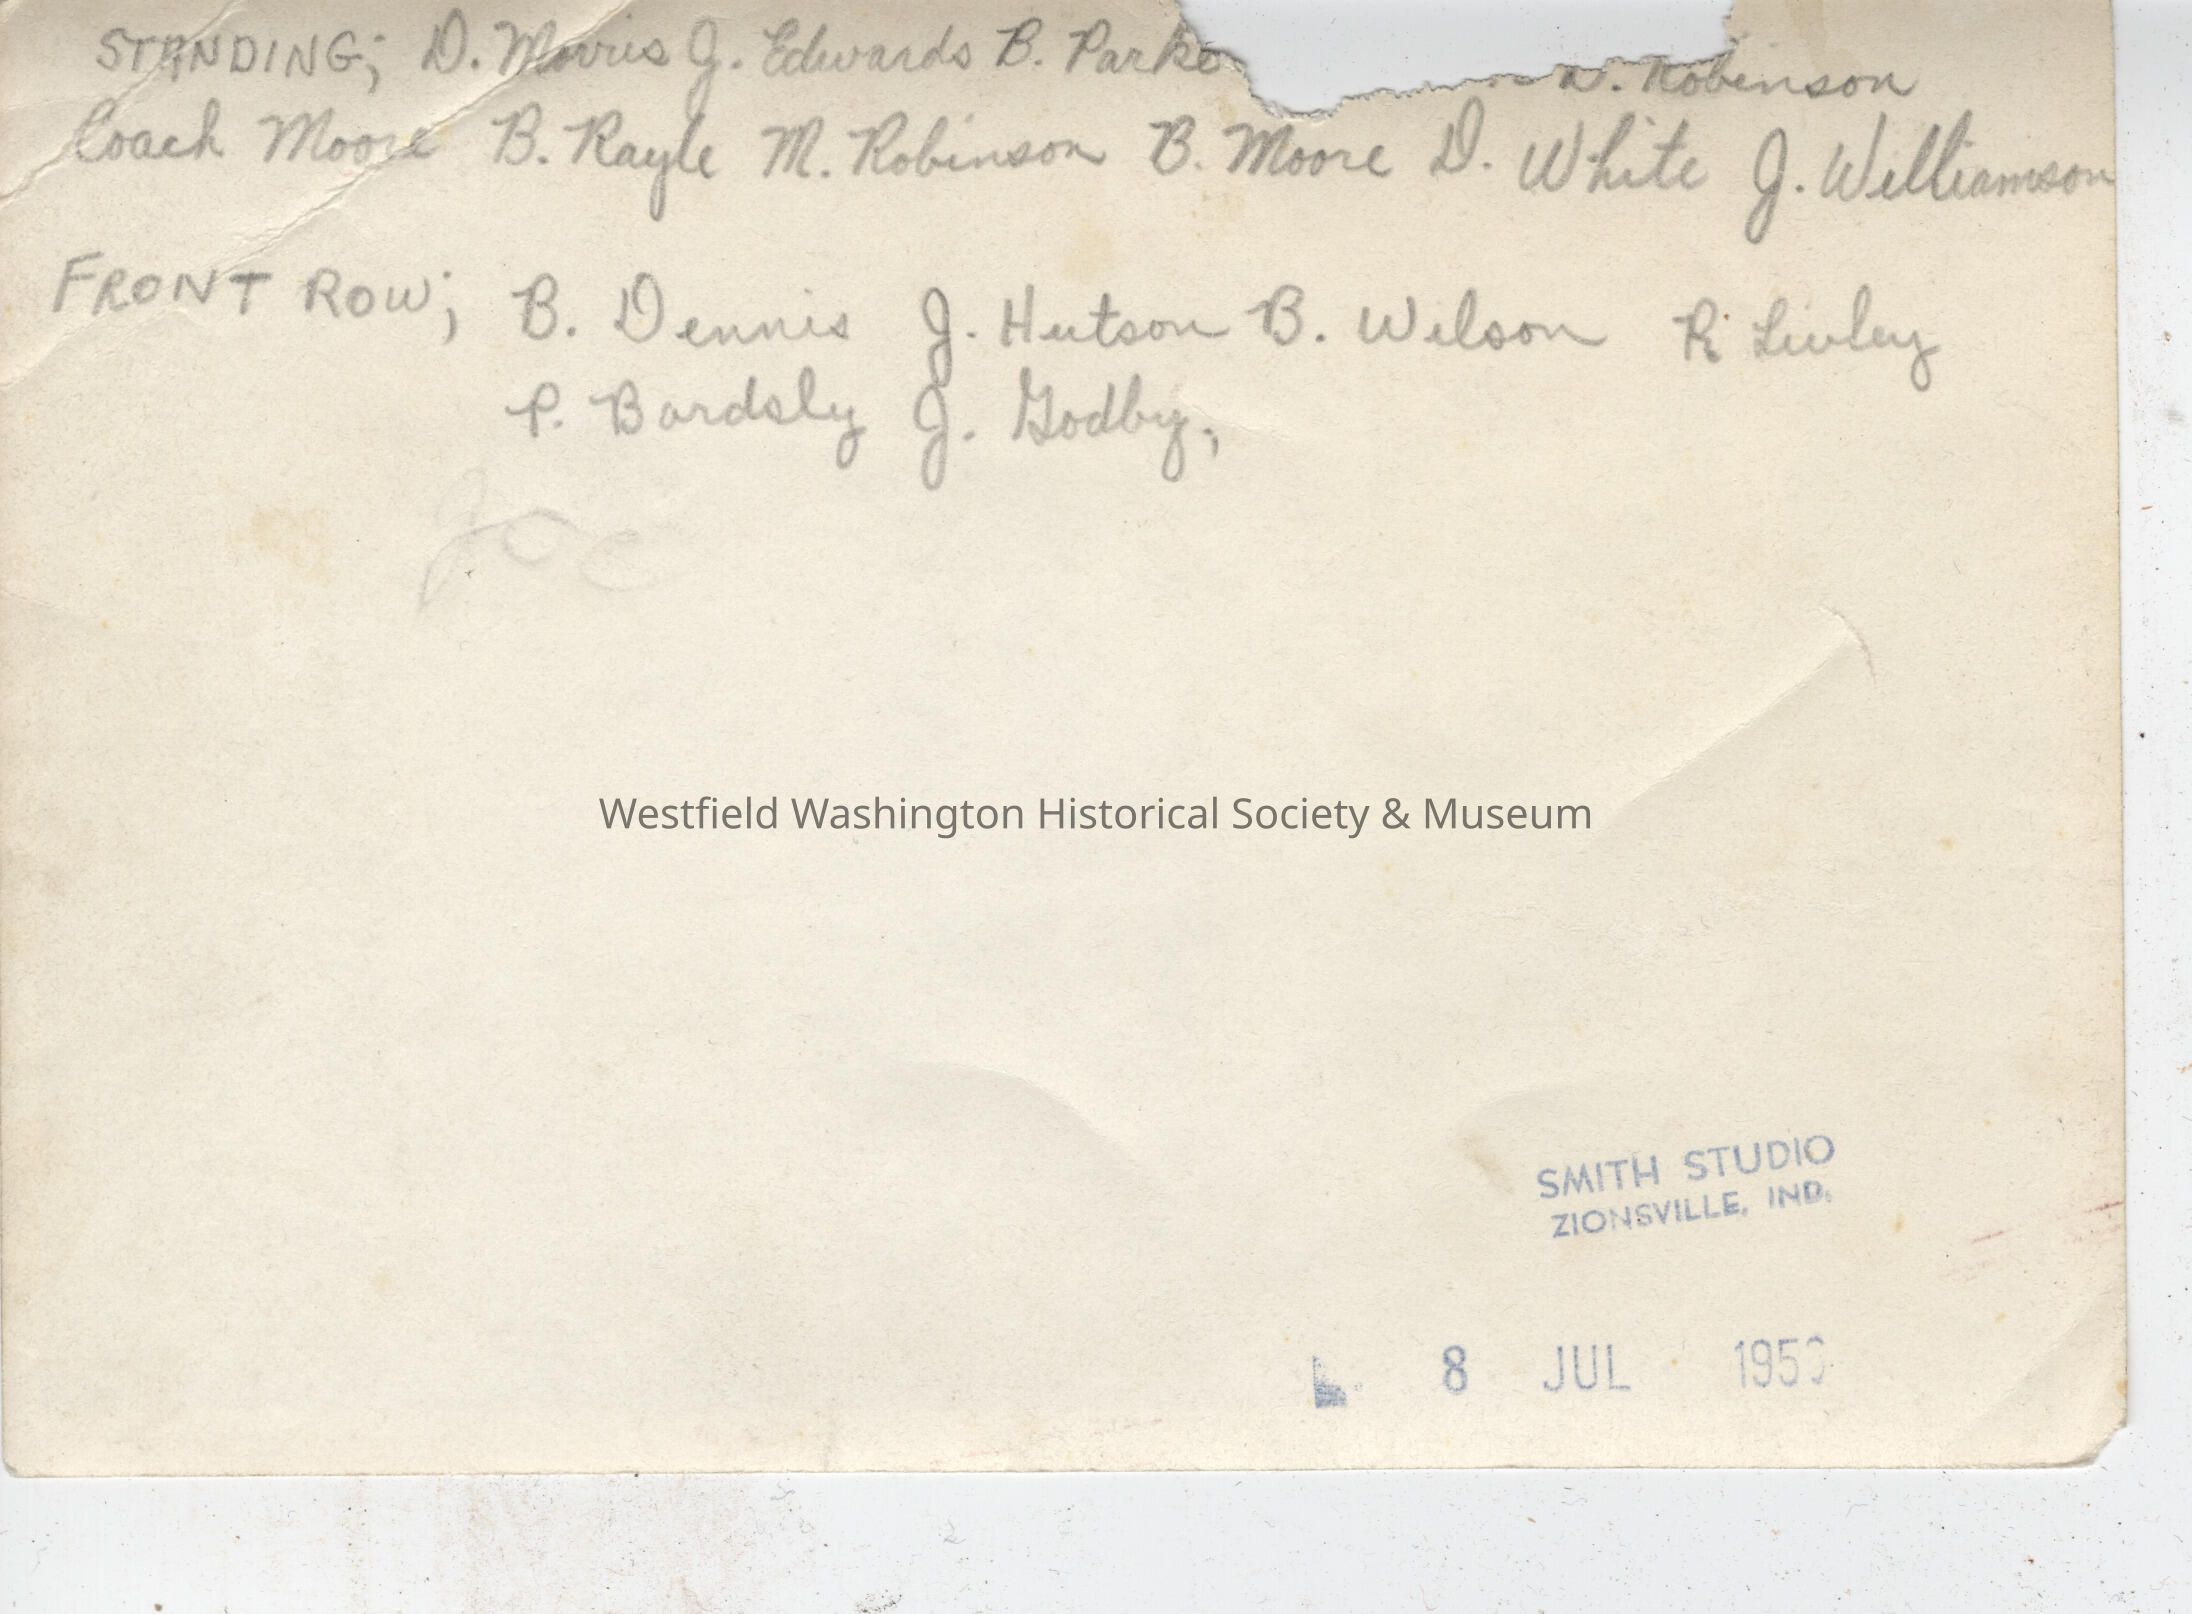 STANDING; D. Morris J. Edwards B. Parke . Robinson
Coach Moore B. Rayle M. Robinson B. Moore D. White J. Williamson
FRONT ROW; B. Dennis J. Hutson B. Wilson R Livley
P. Bardsly J. Godby,
Joe
Westfield Washington Historical Society & Museum
SMITH STUDIO
ZIONSVILLE, IND.
8 JUL